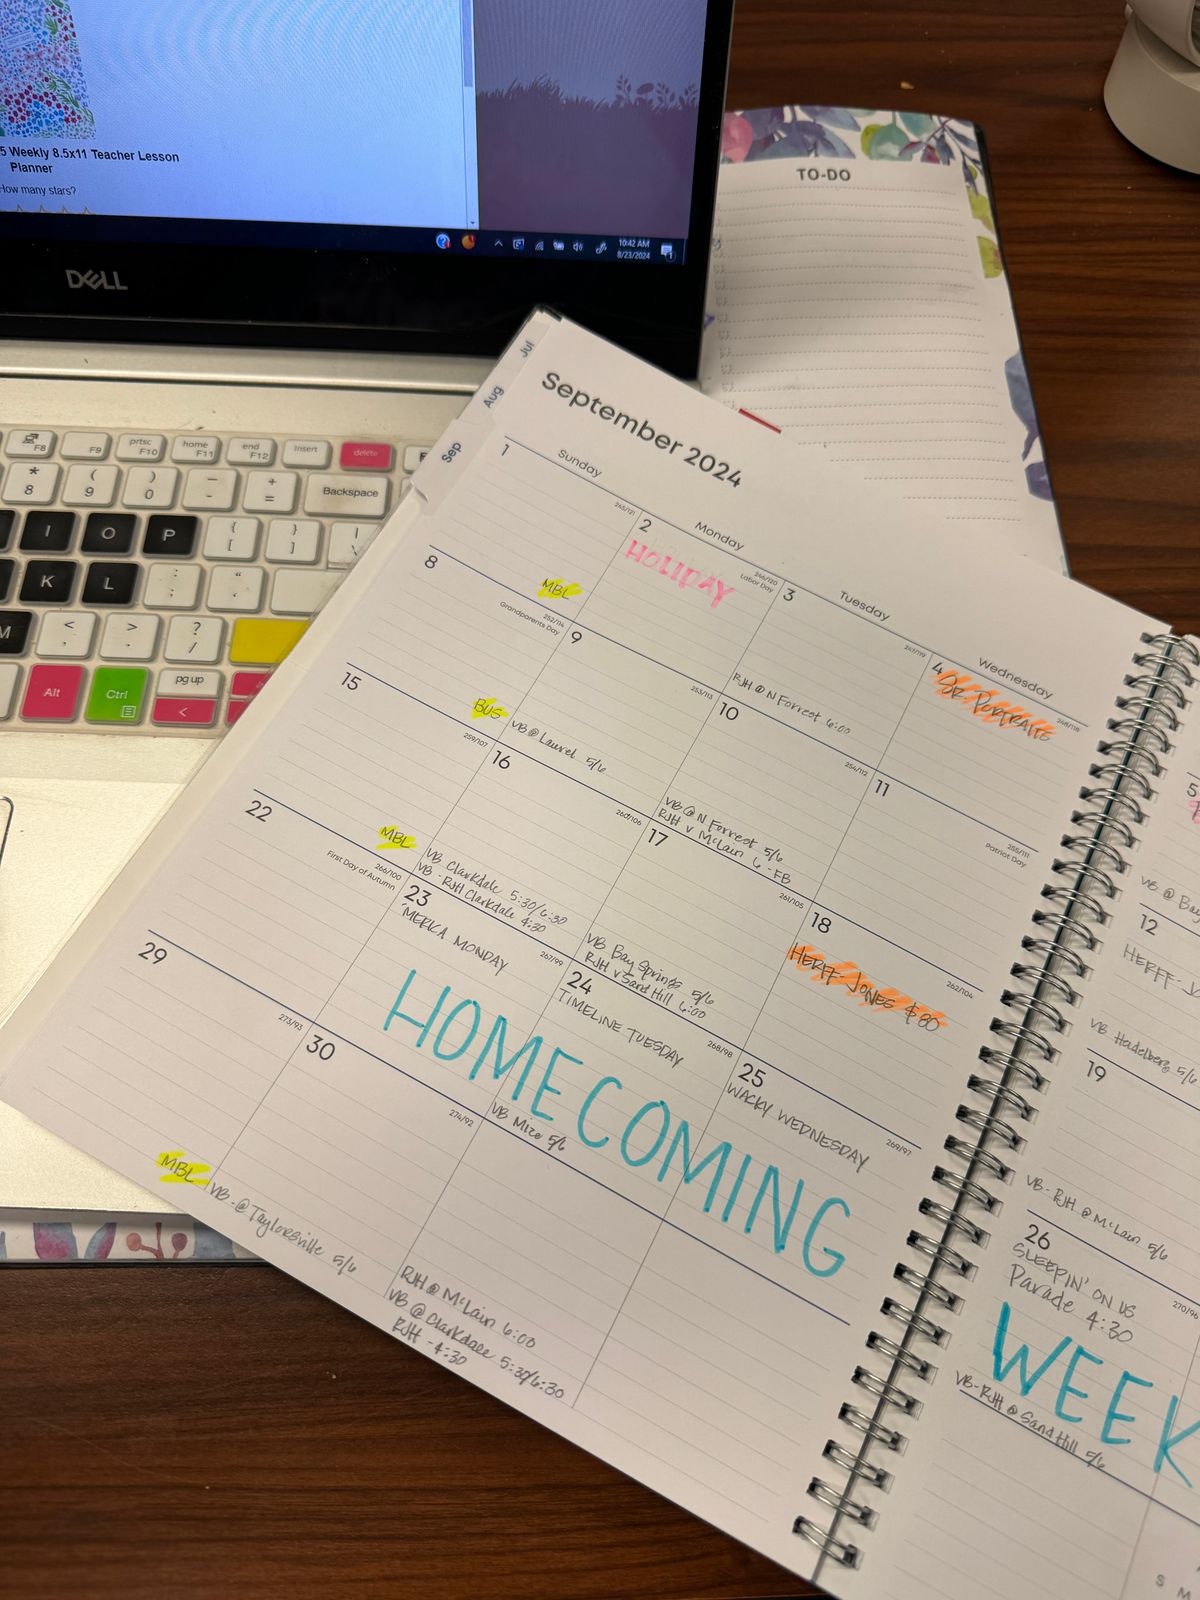 5 Weekly 8.5x11 Teacher Lesson
Planner
How many stars?
10:42 AM
8/23/2024
DELL
TO-DO
F8
F9
prtsc
F10
home
F11
end
F12
insert
delete
*
8
(
9
)
0
-
+
=
Backspace
I
O
P
{
[
}
]
K
L
:
;
M
<
,
>
.
?
/
Alt
Ctrl
pg up
<
Jul
Aug
Sep
September 2024
Sunday
Monday
Tuesday
Wednesday
1
245/121
MBL
2
HOLIDAY
246/120
Labor Day
3
247/119
RJH @ N Forrest 6:00
4
SR. PORTRAITS
248/118
8
252/114
Grandparents Day
BUS
9
253/113
VB @ Laurel 5/6
10
254/112
VB @ N Forrest 5/6
RJH v McLain 6 - FB
11
255/111
Patriot Day
15
259/107
MBL
16
260/106
VB Clarkdale 5:30/6:30
VB - RJH Clarkdale 4:30
17
261/105
VB Bay Springs 5/6
RJH v Sand Hill 6:00
18
262/104
HERFF JONES $80
22
First Day of Autumn
266/100
23
267/99
'MERICA MONDAY
24
268/98
TIMELINE TUESDAY
VB Mize 5/6
25
269/97
WACKY WEDNESDAY
HOMECOMING
29
273/93
MBL
30
274/92
VB - @ Taylorsville 5/6
RJH @ McLain 6:00
VB @ Clarkdale 5:30/6:30
RJH - 4:30
5
VB @ Bay
12
HERFF-J
VB Heidelberg 5/6
19
VB - RJH @ McLain 5/6
26
270/96
SLEEPIN' ON US
Parade 4:30
WEEK
VB-RJH @ Sand Hill 5/6
S M